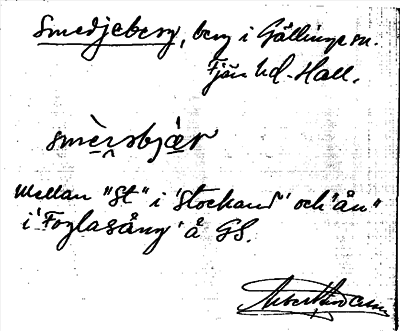 Smedjeberg, berg i Gällinge sn.
Fjäre hd. Hall.
smèrsbjær
Mellan "St" i 'Stockand' och 'ån"
i 'Foglasång' å GS.